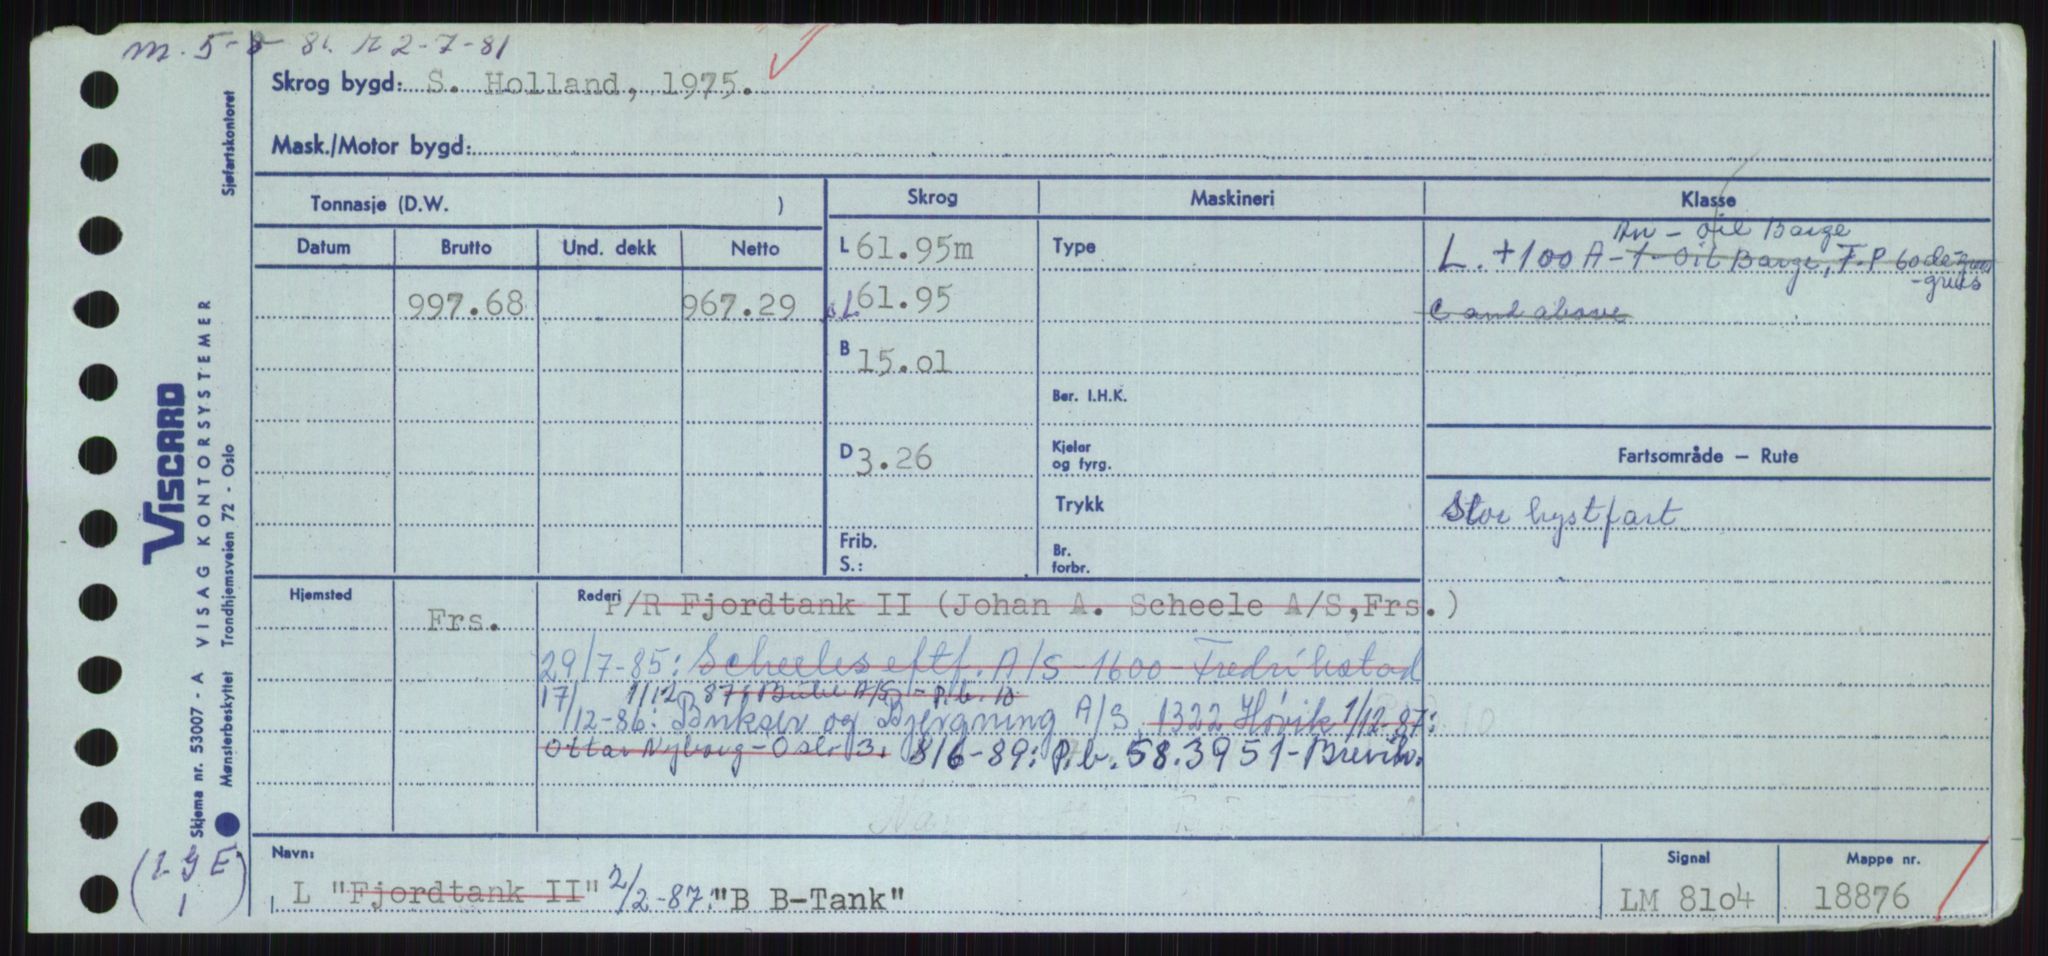 m. 5-8-81. M 2-7-81
Skrog bygd: S. Holland, 1975.
Mask./Motor bygd:
Tonnasje (D.W. )
Skrog
Maskineri
Klasse
Datum
Brutto
Und. dekk
Netto
997.68
967.29
L 61.95m
oL 61.95
B 15.01
D 3.26
Frib.
S.:
Type
Ber. I.H.K.
Kjeler
og fyrg.
Trykk
Br.
forbr.
An - Oil Barge
L. +100 A - 1 - Oil Barge, F.P 60 de-
-grees
C and above
Fartsområde – Rute
Stor kystfart
Hjemsted
Frs.
Rederi P/R Fjordtank II (Johan A. Scheele A/S, Frs.)
29/7-85: Scheeles eftf. A/S - 1600 - Fredrikstad
17/12-86: Bukser og Bjergning A/S 1322 Høvik 1/12-87:
Ottar Nyborg - Oslo 3. 8/6-89: P.b. 58.3951 - Brevik.
Navn:
L "Fjordtank II" 2/2-87: "B B-Tank"
Signal
LM 8104
Mappe nr.
18876
Sjøfartskontoret
VISCARD
VISAG KONTORSYSTEMER
Trondhjemsveien 72 - Oslo
Skjema nr. 53007 - A
Mønsterbeskyttet